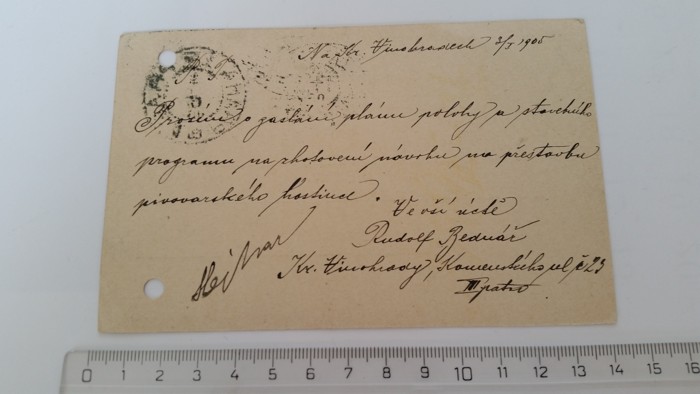 Na Kr. Vinohradech 3/I 1905
P. T.
Prosím o zaslání plánu polohy a stavebního
programu na zhotovení návrhu na přestavbu
pivovarského hostince.
Ve vší úctě
Rudolf Bednář
Kr. Vinohrady, Komenského ul. č 23
III patro
0 1 2 3 4 5 6 7 8 9 10 11 12 13 14 15 16